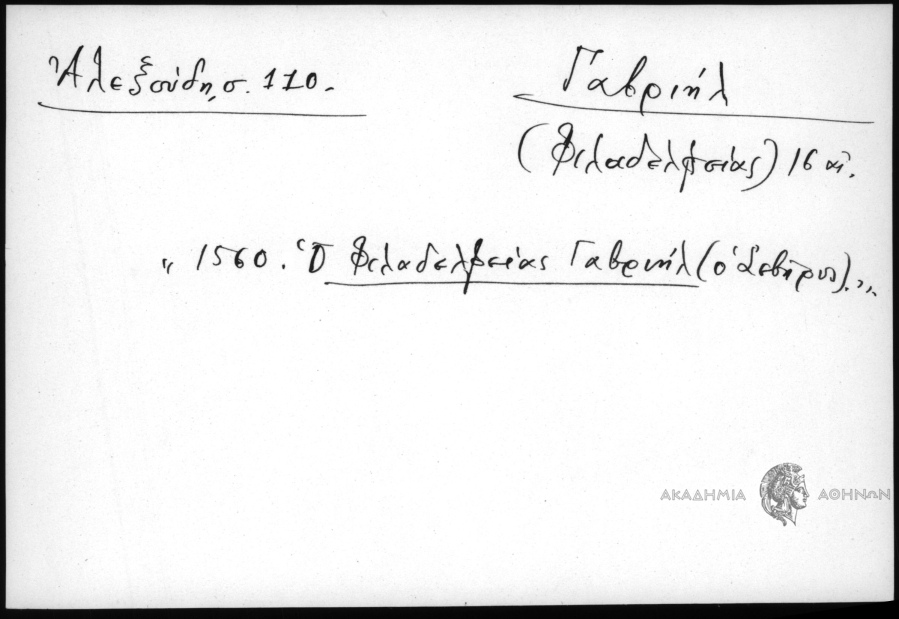 Ἀλεξούδη, σ. 110.
Γαβριήλ
(Φιλαδελφείας) 16 αἰ.
"1560. Ὁ Φιλαδελφείας Γαβριήλ (ὁ Σεβῆρος)."
ΑΚΑΔΗΜΙΑ ΑΘΗΝΩΝ